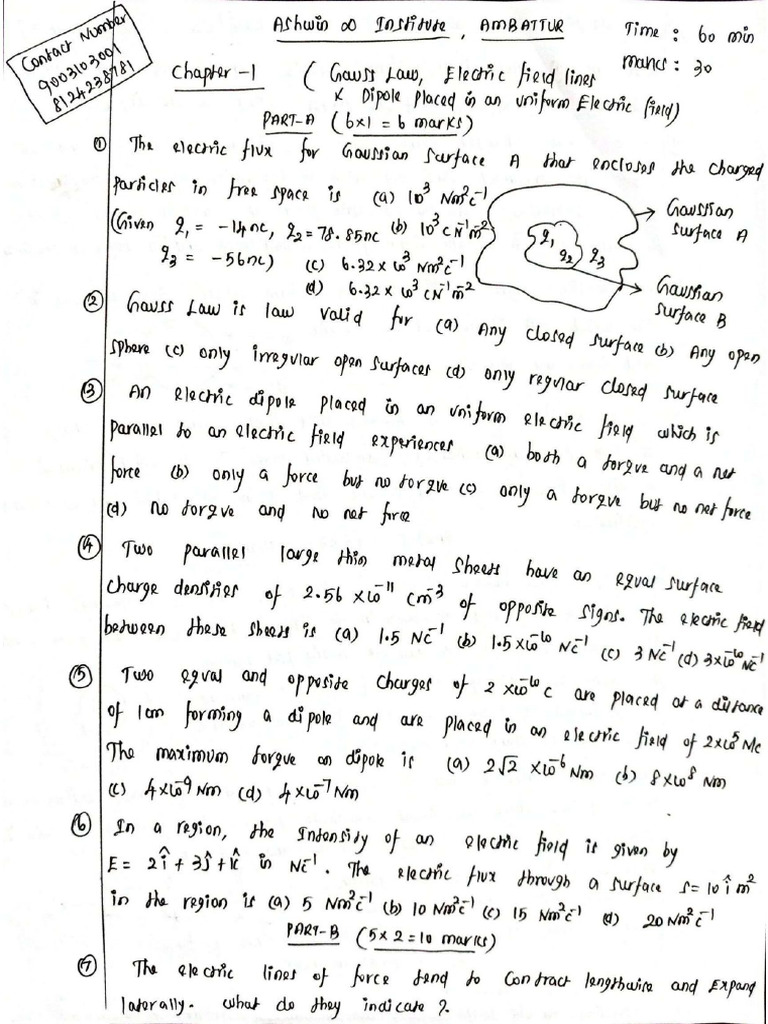 Ashwin ∞ Institute, AMBATTUR
Time : 60 min
Contact Number
9003103001
8124238781
Marks : 30
Chapter -1 ( Gauss Law, Electric field lines
& Dipole placed in an uniform Electric field)
PART-A (6x1 = 6 marks)
① The electric flux for Gaussian surface A that encloses the charged
particles in free space is (a) 10³ Nm²c⁻¹
(Given q₁ = -14nc, q₂ = 78.85nc (b) 10³ CN⁻¹m⁻²
q₃ = -56nc) (c) 6.32 x 10³ Nm²c⁻¹
(d) 6.32 x 10³ CN⁻¹m⁻²
q₁ q₂ q₃
Gaussian
surface A
Gaussian
surface B
② Gauss Law is law valid for (a) Any closed surface (b) Any open
sphere (c) only irregular open surfaces (d) only regular closed surface
③ An electric dipole placed in an uniform electric field which is
parallel to an electric field experiences (a) both a torque and a net
force (b) only a force but no torque (c) only a torque but no net force
(d) no torque and no net force
④ Two parallel large thin metal sheets have an equal surface
charge densities of 2.56 x 10⁻¹¹ Cm⁻³ of opposite signs. The electric field
between these sheets is (a) 1.5 NC⁻¹ (b) 1.5x10⁻¹⁰ NC⁻¹ (c) 3 NC⁻¹ (d) 3x10⁻¹⁰ NC⁻¹
⑤ Two equal and opposite charges of 2 x10⁻¹⁰ C are placed at a distance
of 1cm forming a dipole and are placed in an electric field of 2x10⁵ N/c
The maximum torque on dipole is (a) 2√2 x10⁻⁶ Nm (b) 8x10⁸ Nm
(c) 4x10⁻⁹ Nm (d) 4x10⁻⁷ Nm
⑥ In a region, the Intensity of an electric field is given by
E = 2î + 3ĵ + k̂ in NC⁻¹. The electric flux through a surface S=10 î m²
in the region is (a) 5 Nm²c⁻¹ (b) 10 Nm²c⁻¹ (c) 15 Nm²c⁻¹ (d) 20 Nm²c⁻¹
PART-B (5x2 = 10 marks)
⑦ The electric lines of force tend to contract lengthwise and Expand
laterally. What do they indicate?